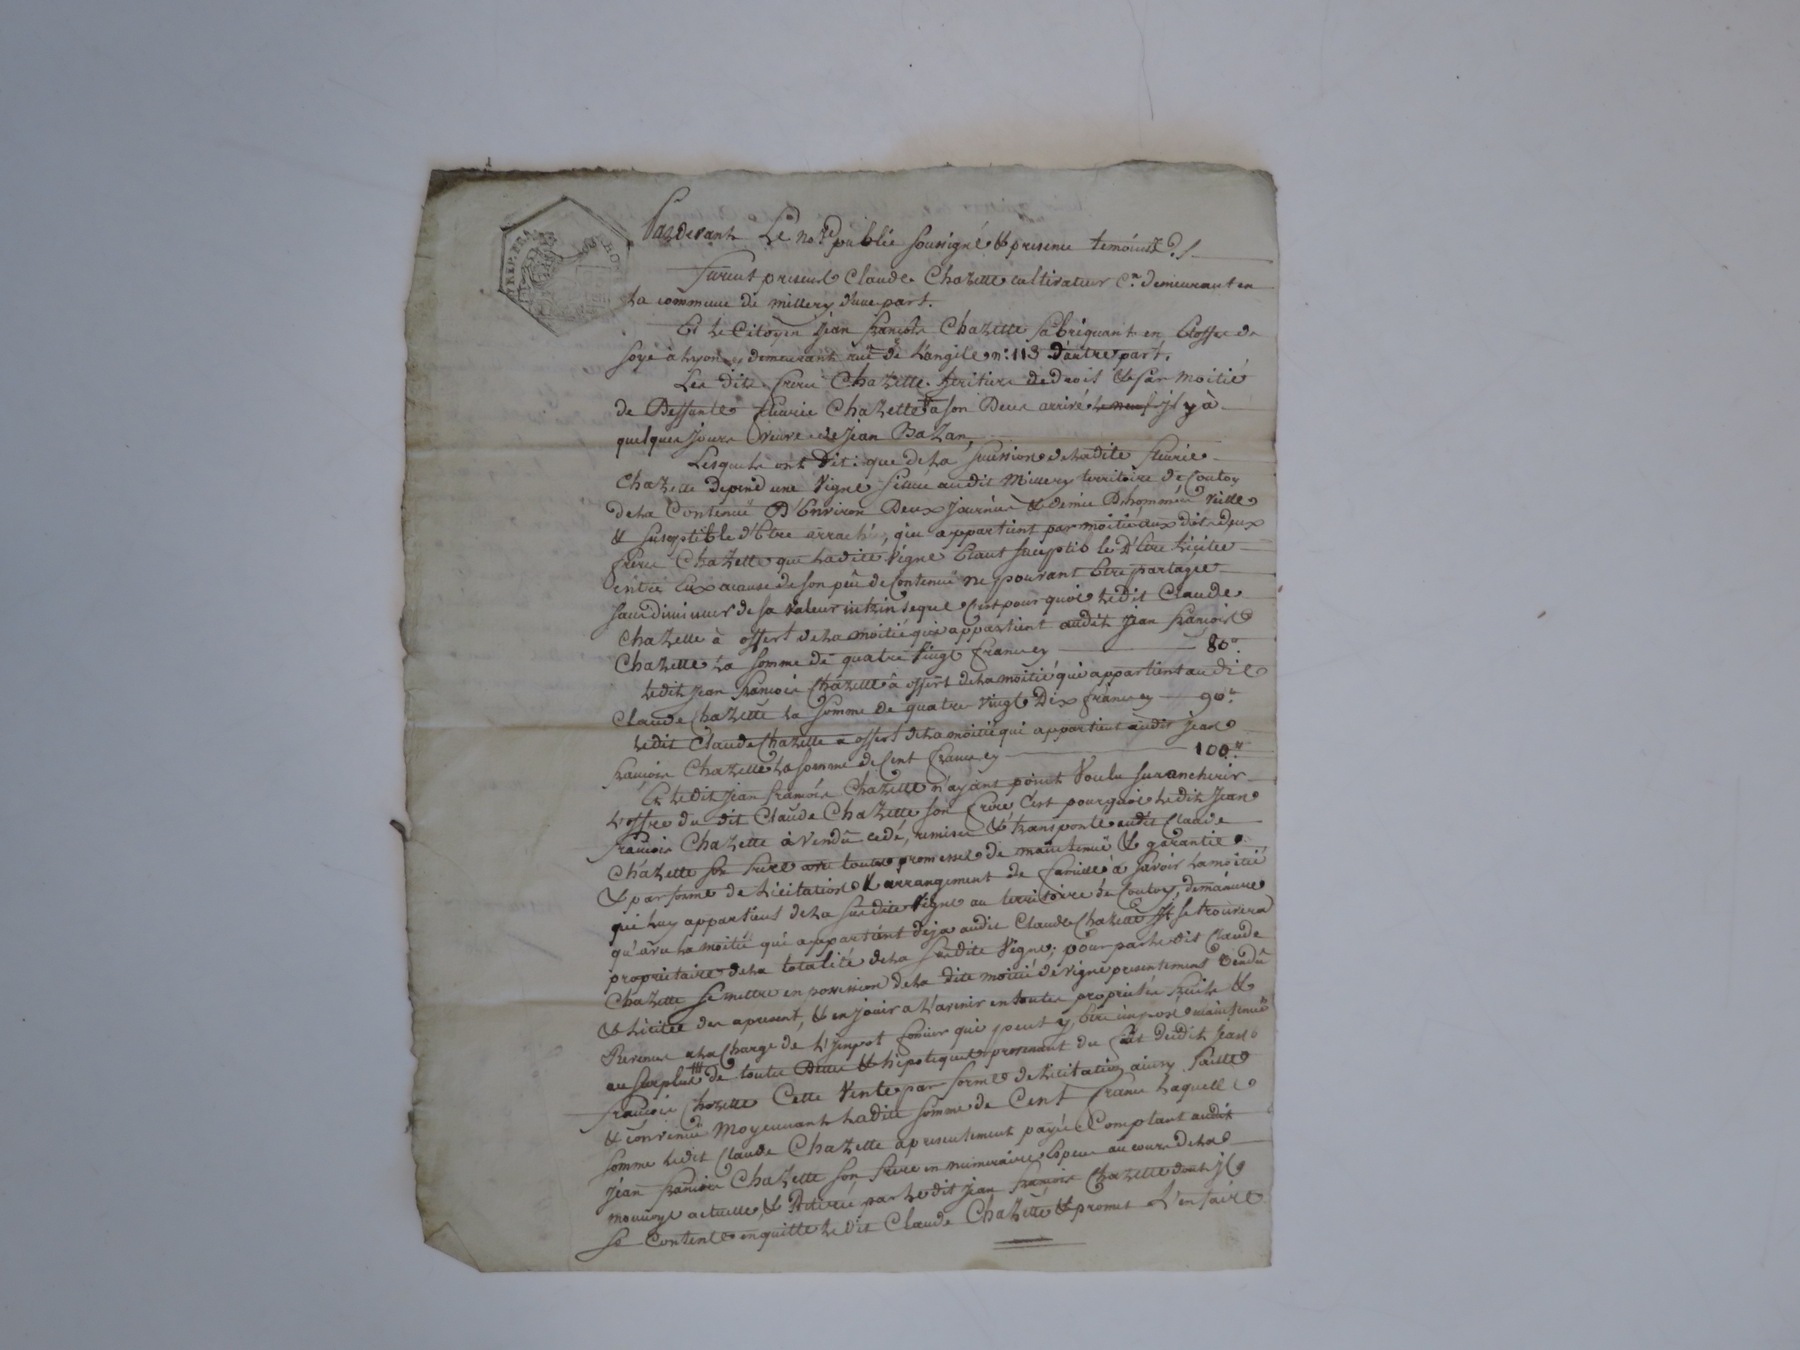 Pardevant Le no.re publié soussigné & presence temoins
furent presens Claude Chazette cultivateur C.n demeurant en
La commune de millery d'une part.
Et Le Citoyen jean françois Chazette fabriquant en Etoffes de
soye a Lyon y demeurant rue de L'angile n.° 113 d'autre part.
Les dits freres Chazette heritiers de droit & par moitié
de Deffunte fleurie Chazette a son Deces arrivé jl y à
quelques jours veuve de Jean Bazan,
Lesquels ont Dit: que de La succession de Ladite fleurie
Chazette depend une Vigne situee audit Millery territoire de Couloy
de La Contenue D'Environ Deux journées & demie D'hommée vielle
& suseptible d'Etre arraché, qui appartient par moitié aux dits deux
freres Chazette que Ladite Vigne Etant suceptible D'Etre Licitée
entre Eux a cause de son peu de Contenue ne pouvant Etre partagée
sans diminuer de sa Valeur intrinseque C'est pourquoi Ledit Claude
Chazette à offert de La moitié qui appartient audit jean françois
Chazette La somme de quatre Vingt francs 80"
Ledit jean françois Chazette à offert de La moitié qui appartient audit
Claude Chazette La somme de quatre Vingt Dix francs 90"
Ledit Claude Chazette a offert de La moitié qui appartient audit jean
françois Chazette La somme de Cent francs 100"
Et Ledit jean françois Chazette n'ayant point Voulu surancherir
L'offre du dit Claude Chazette son frere C'est pourquoi Ledit jean
françois Chazette à Vendû cedé, remise & transporté audit Claude
Chazette son frere avec toutes promesses de maintenue & garantie
& par forme de Licitation & arrangement de famille à savoir La moitié
qui Luy appartient de La susdite Vigne au territoire de Couloy, demaniere
qu'avec La moitié qui appartient deja audit Claude Chazette jl se trouvera
proprietaire de La totalité de La susdite Vigne; pour par Le dit Claude
Chazette se mettre en possession de La dite moitié de Vigne presentement Vendû
& Licitée des apresent, & en jouir a L'avenir en toutes proprietés fruits &
Revenus a La Charge de L'jmpot foncier qui peut y Etre imposé maintenue
au surplus de toutes Dettes & hipoteques provenant du fait dudit jean
françois Chazette Cette Vente par forme de Licitation ainsy faitte
& convenue Moyennant Ladite somme de Cent francs Laquelle
somme Ledit Claude Chazette a presentement payée Comptant audit
jean françois Chazette son frere en numeraire Especes au cours de La
monnoye actuelle, & Retirée par Le dit jean françois Chazette dont jl
se Contente en quitte Le dit Claude Chazette & promet L'en faire